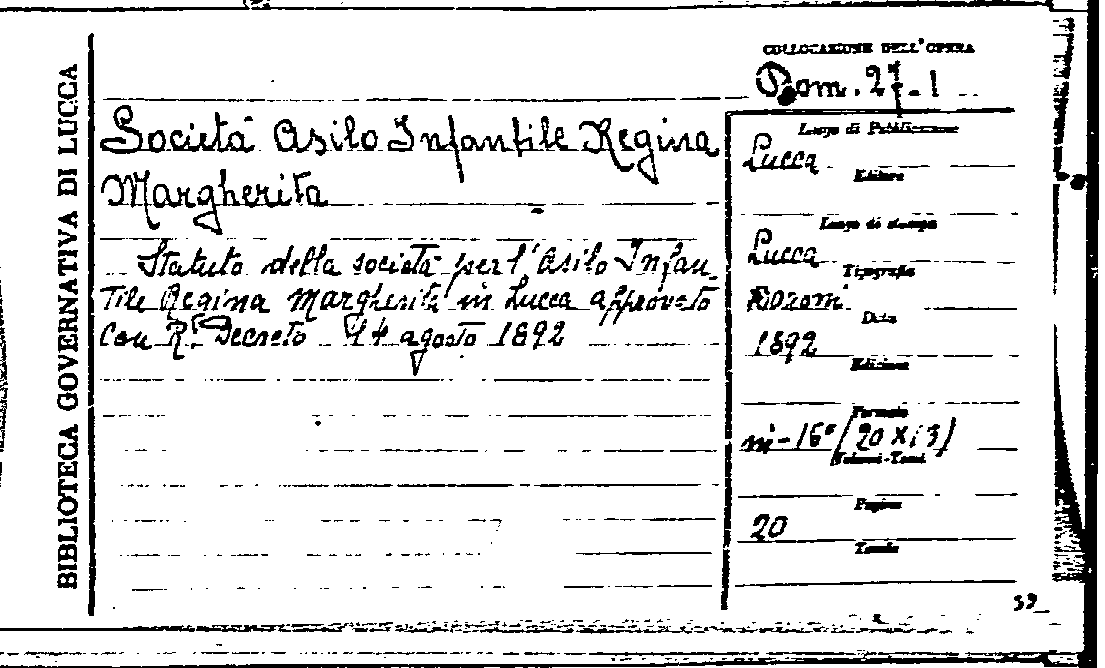 BIBLIOTECA GOVERNATIVA DI LUCCA
COLLOCAZIONE DELL'OPERA
Dom. 27-1
Società Asilo Infantile Regina
Margherita
Statuto della società per l'Asilo Infan-
tile Regina Margherita in Lucca approvato
con R.º Decreto 14 agosto 1892
Luogo di Pubblicazione
Lucca
Editore
Luogo di stampa
Lucca
Tipografia
Data
1892
Edizione
Formato
in-16º (20 x 13)
Volumi-Tomi
Pagine
20
Tavole